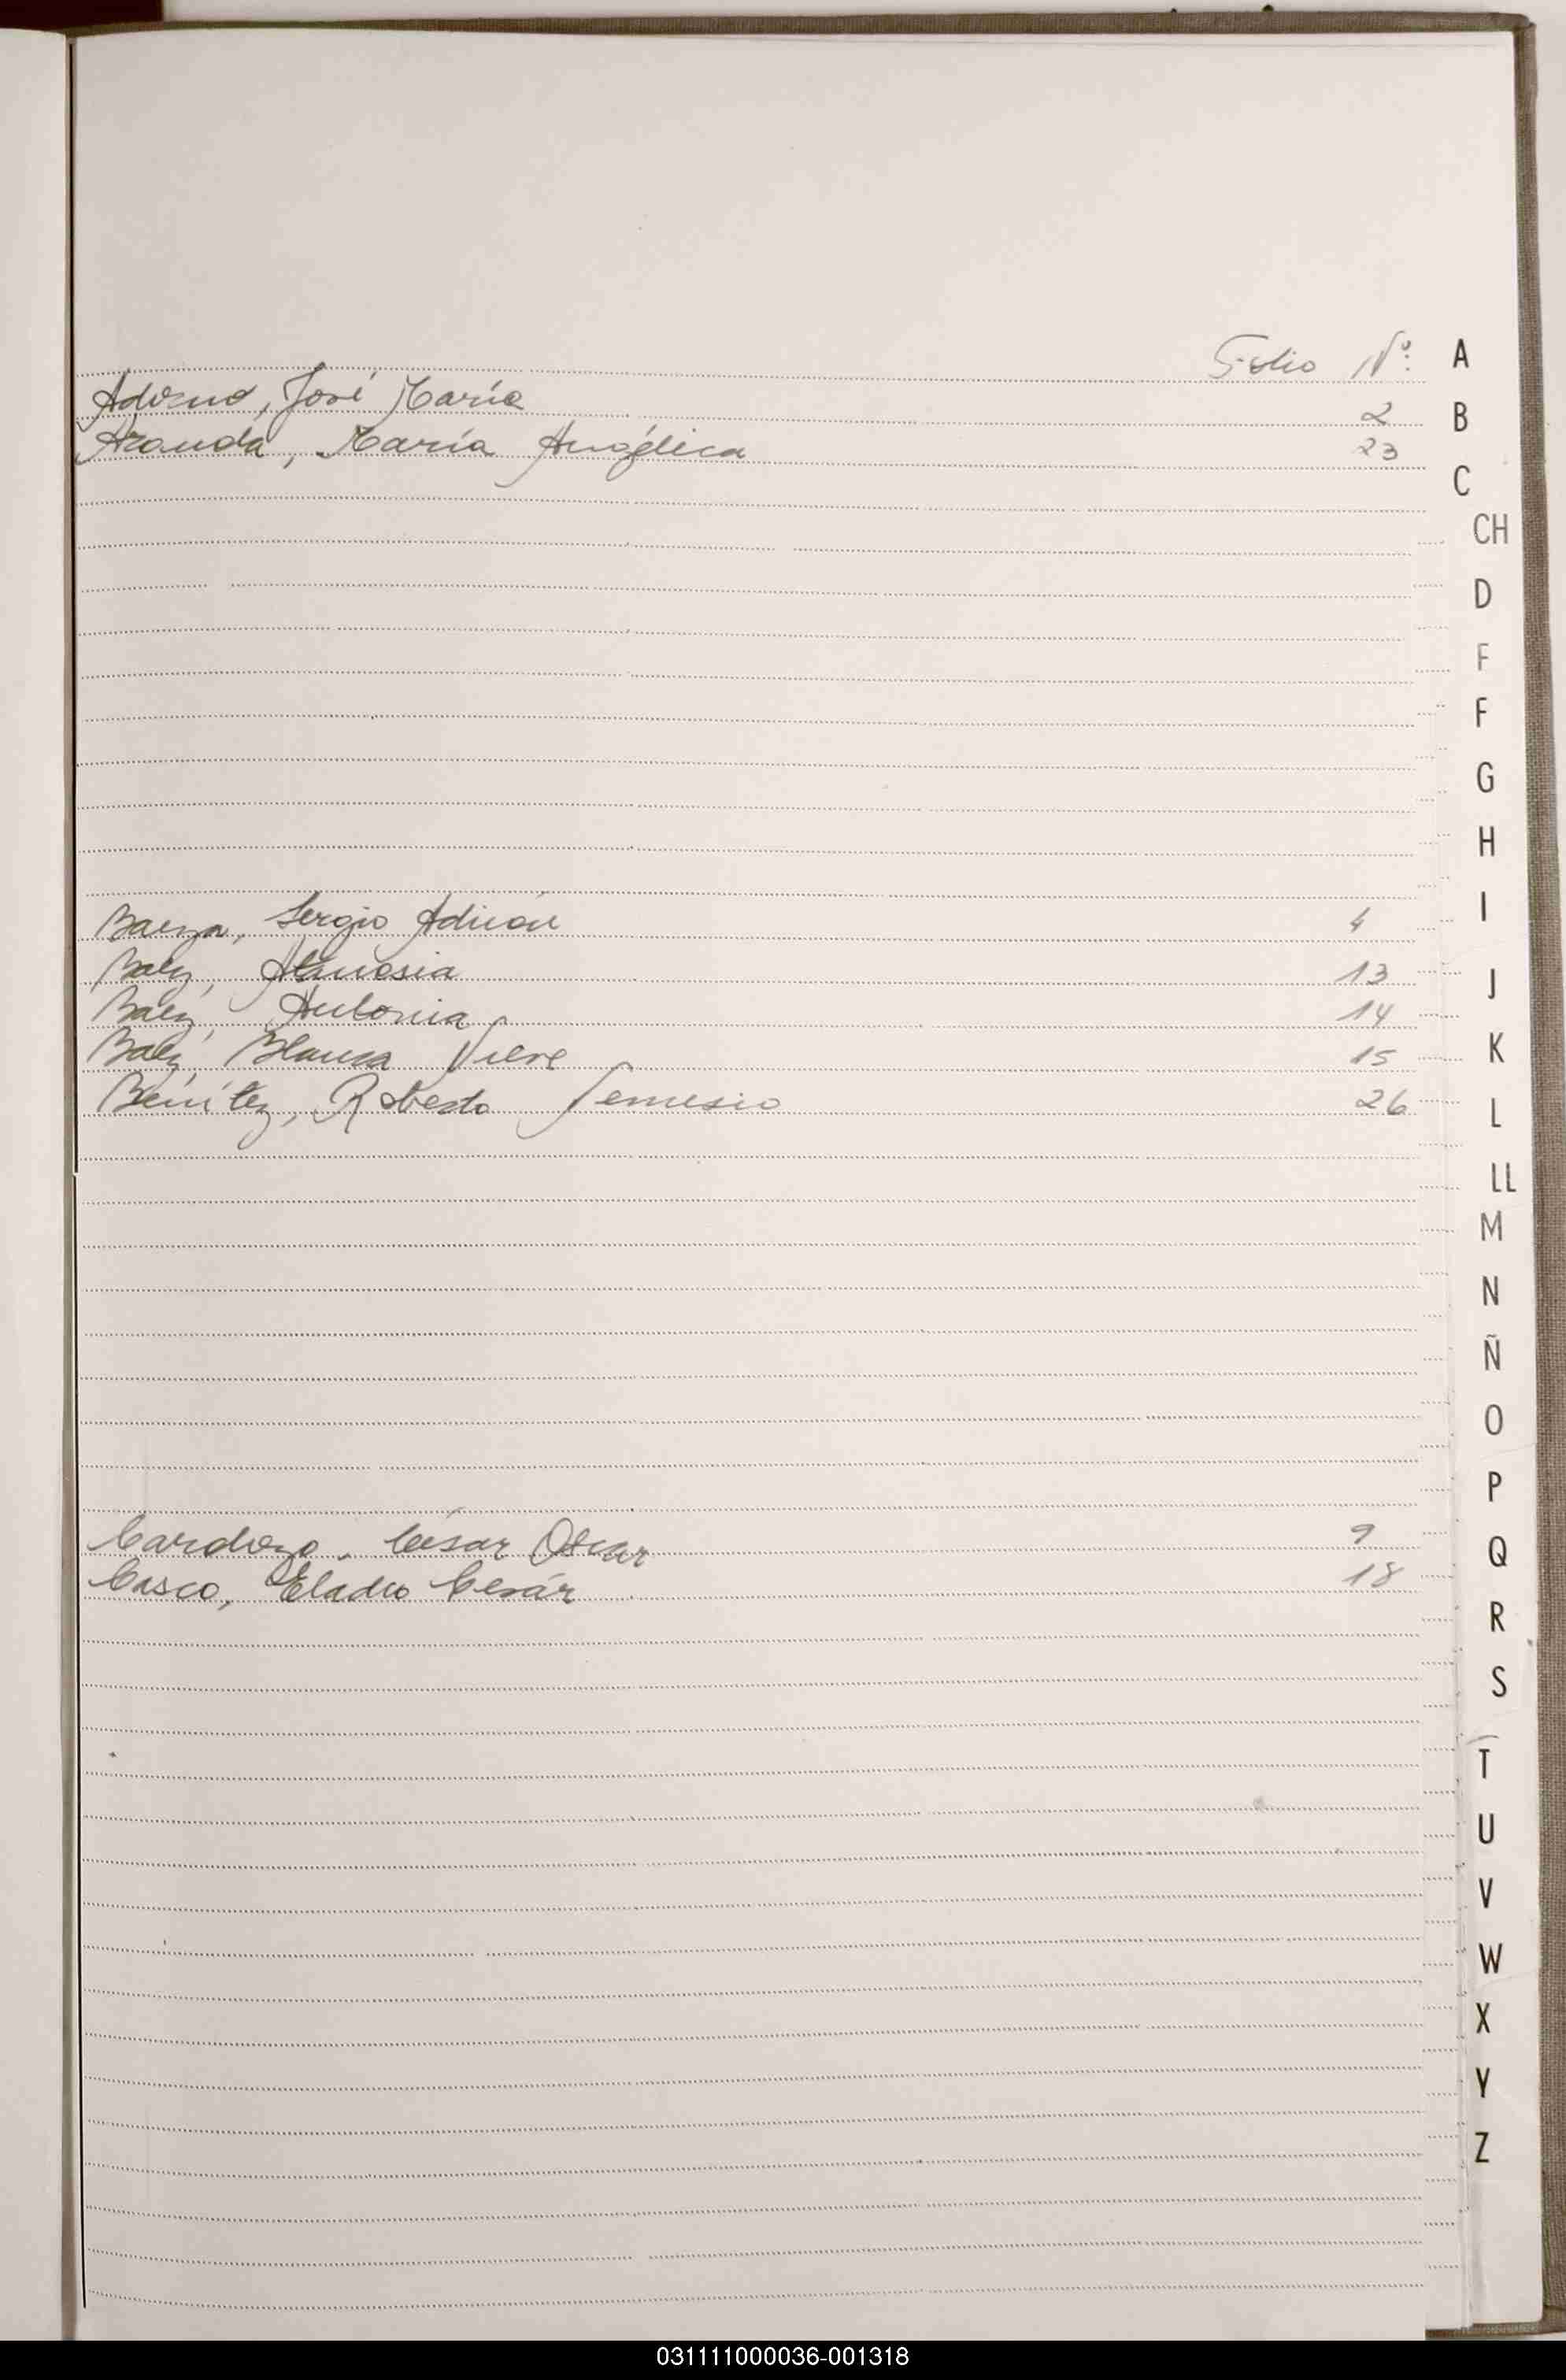 Folio Nº:
Adorno, José María 2
Aranda, María Angélica 23
Baeza, Sergio Adrián 4
Baéz, Atanasia 13
Baéz, Antonia 14
Baéz, Blanca 15
Benítez, Roberto 26
Cardozo, César Oscar 9
Casco, Eladio Cesár 18
A
B
C
CH
D
F
F
G
H
I
J
K
L
LL
M
N
Ñ
O
P
Q
R
S
T
U
V
W
X
Y
Z
031111000036-001318